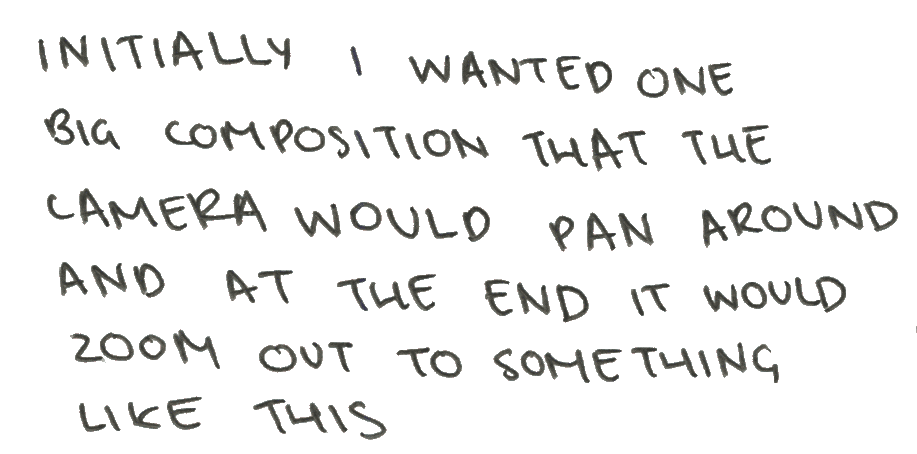 INITIALLY I WANTED ONE
BIG COMPOSITION THAT THE
CAMERA WOULD PAN AROUND
AND AT THE END IT WOULD
ZOOM OUT TO SOMETHING
LIKE THIS